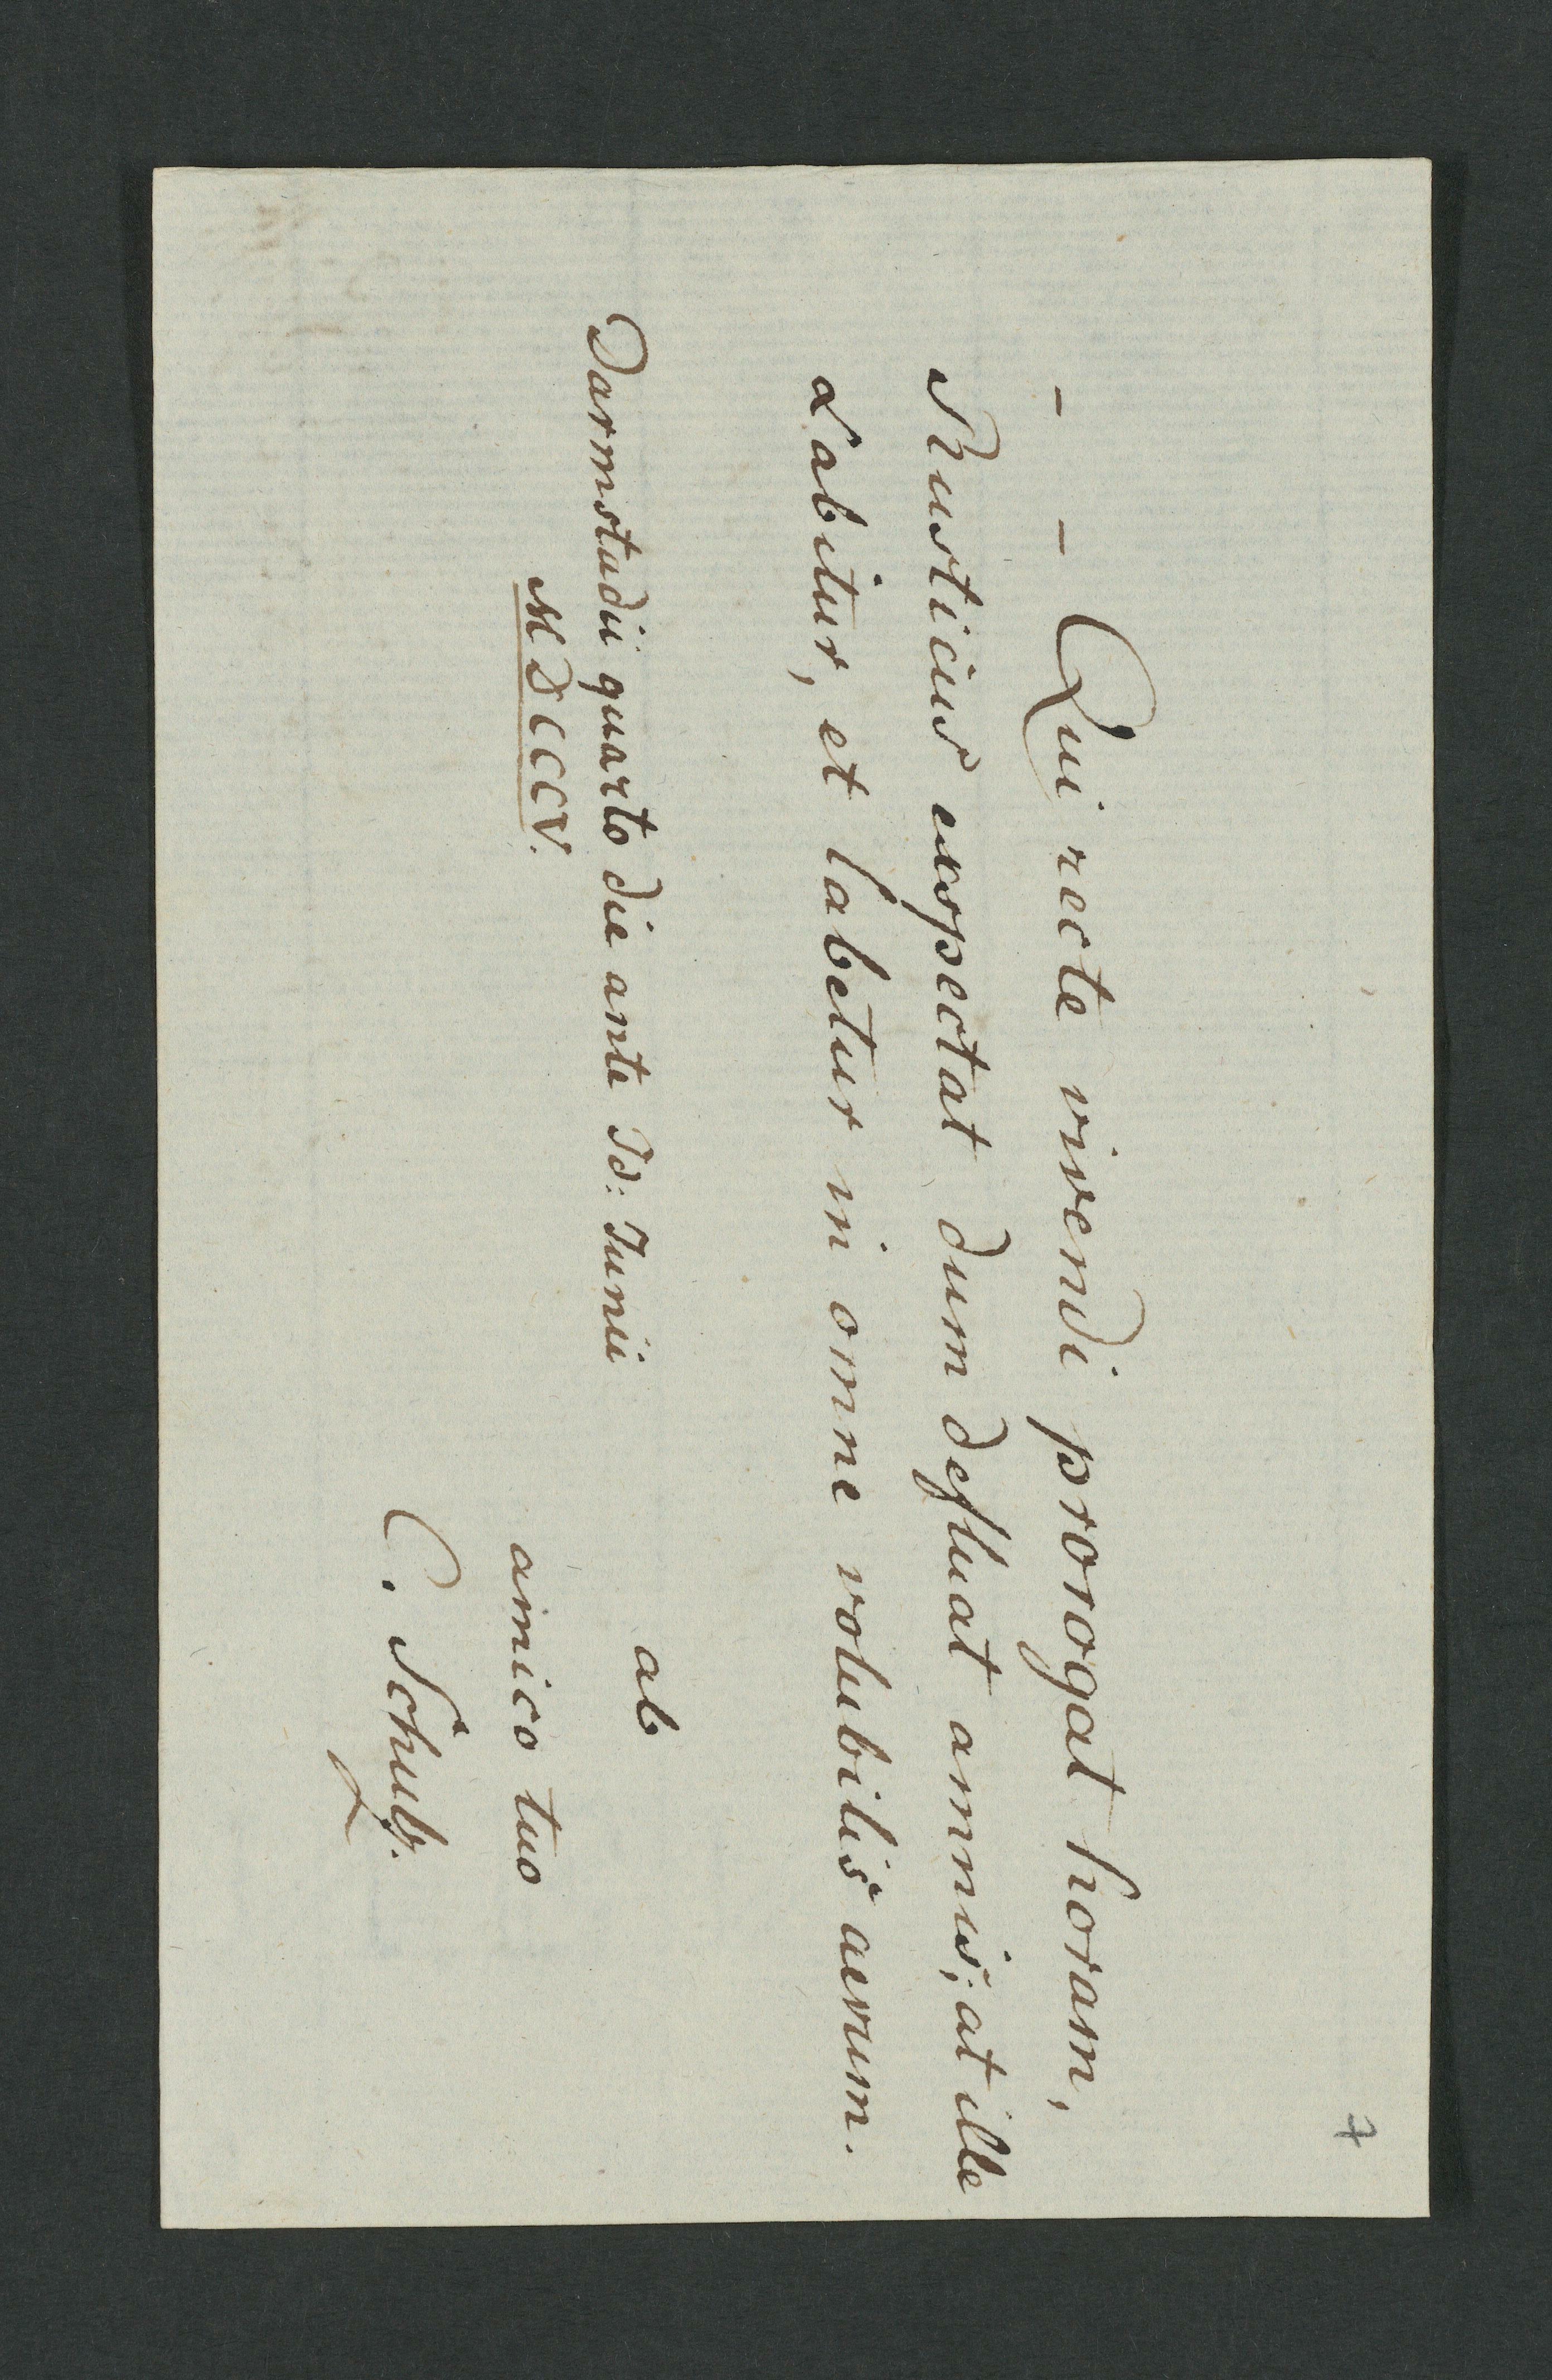 7
- - Qui recte vivendi prorogat horam,
Rusticus exspectat dum defluat amnis; at ille
Labitur, et labetur in omne volubilis aevum.
Darmstadii quarto die ante Id: Junii
MDCCCV.
ab
amico tuo
C.